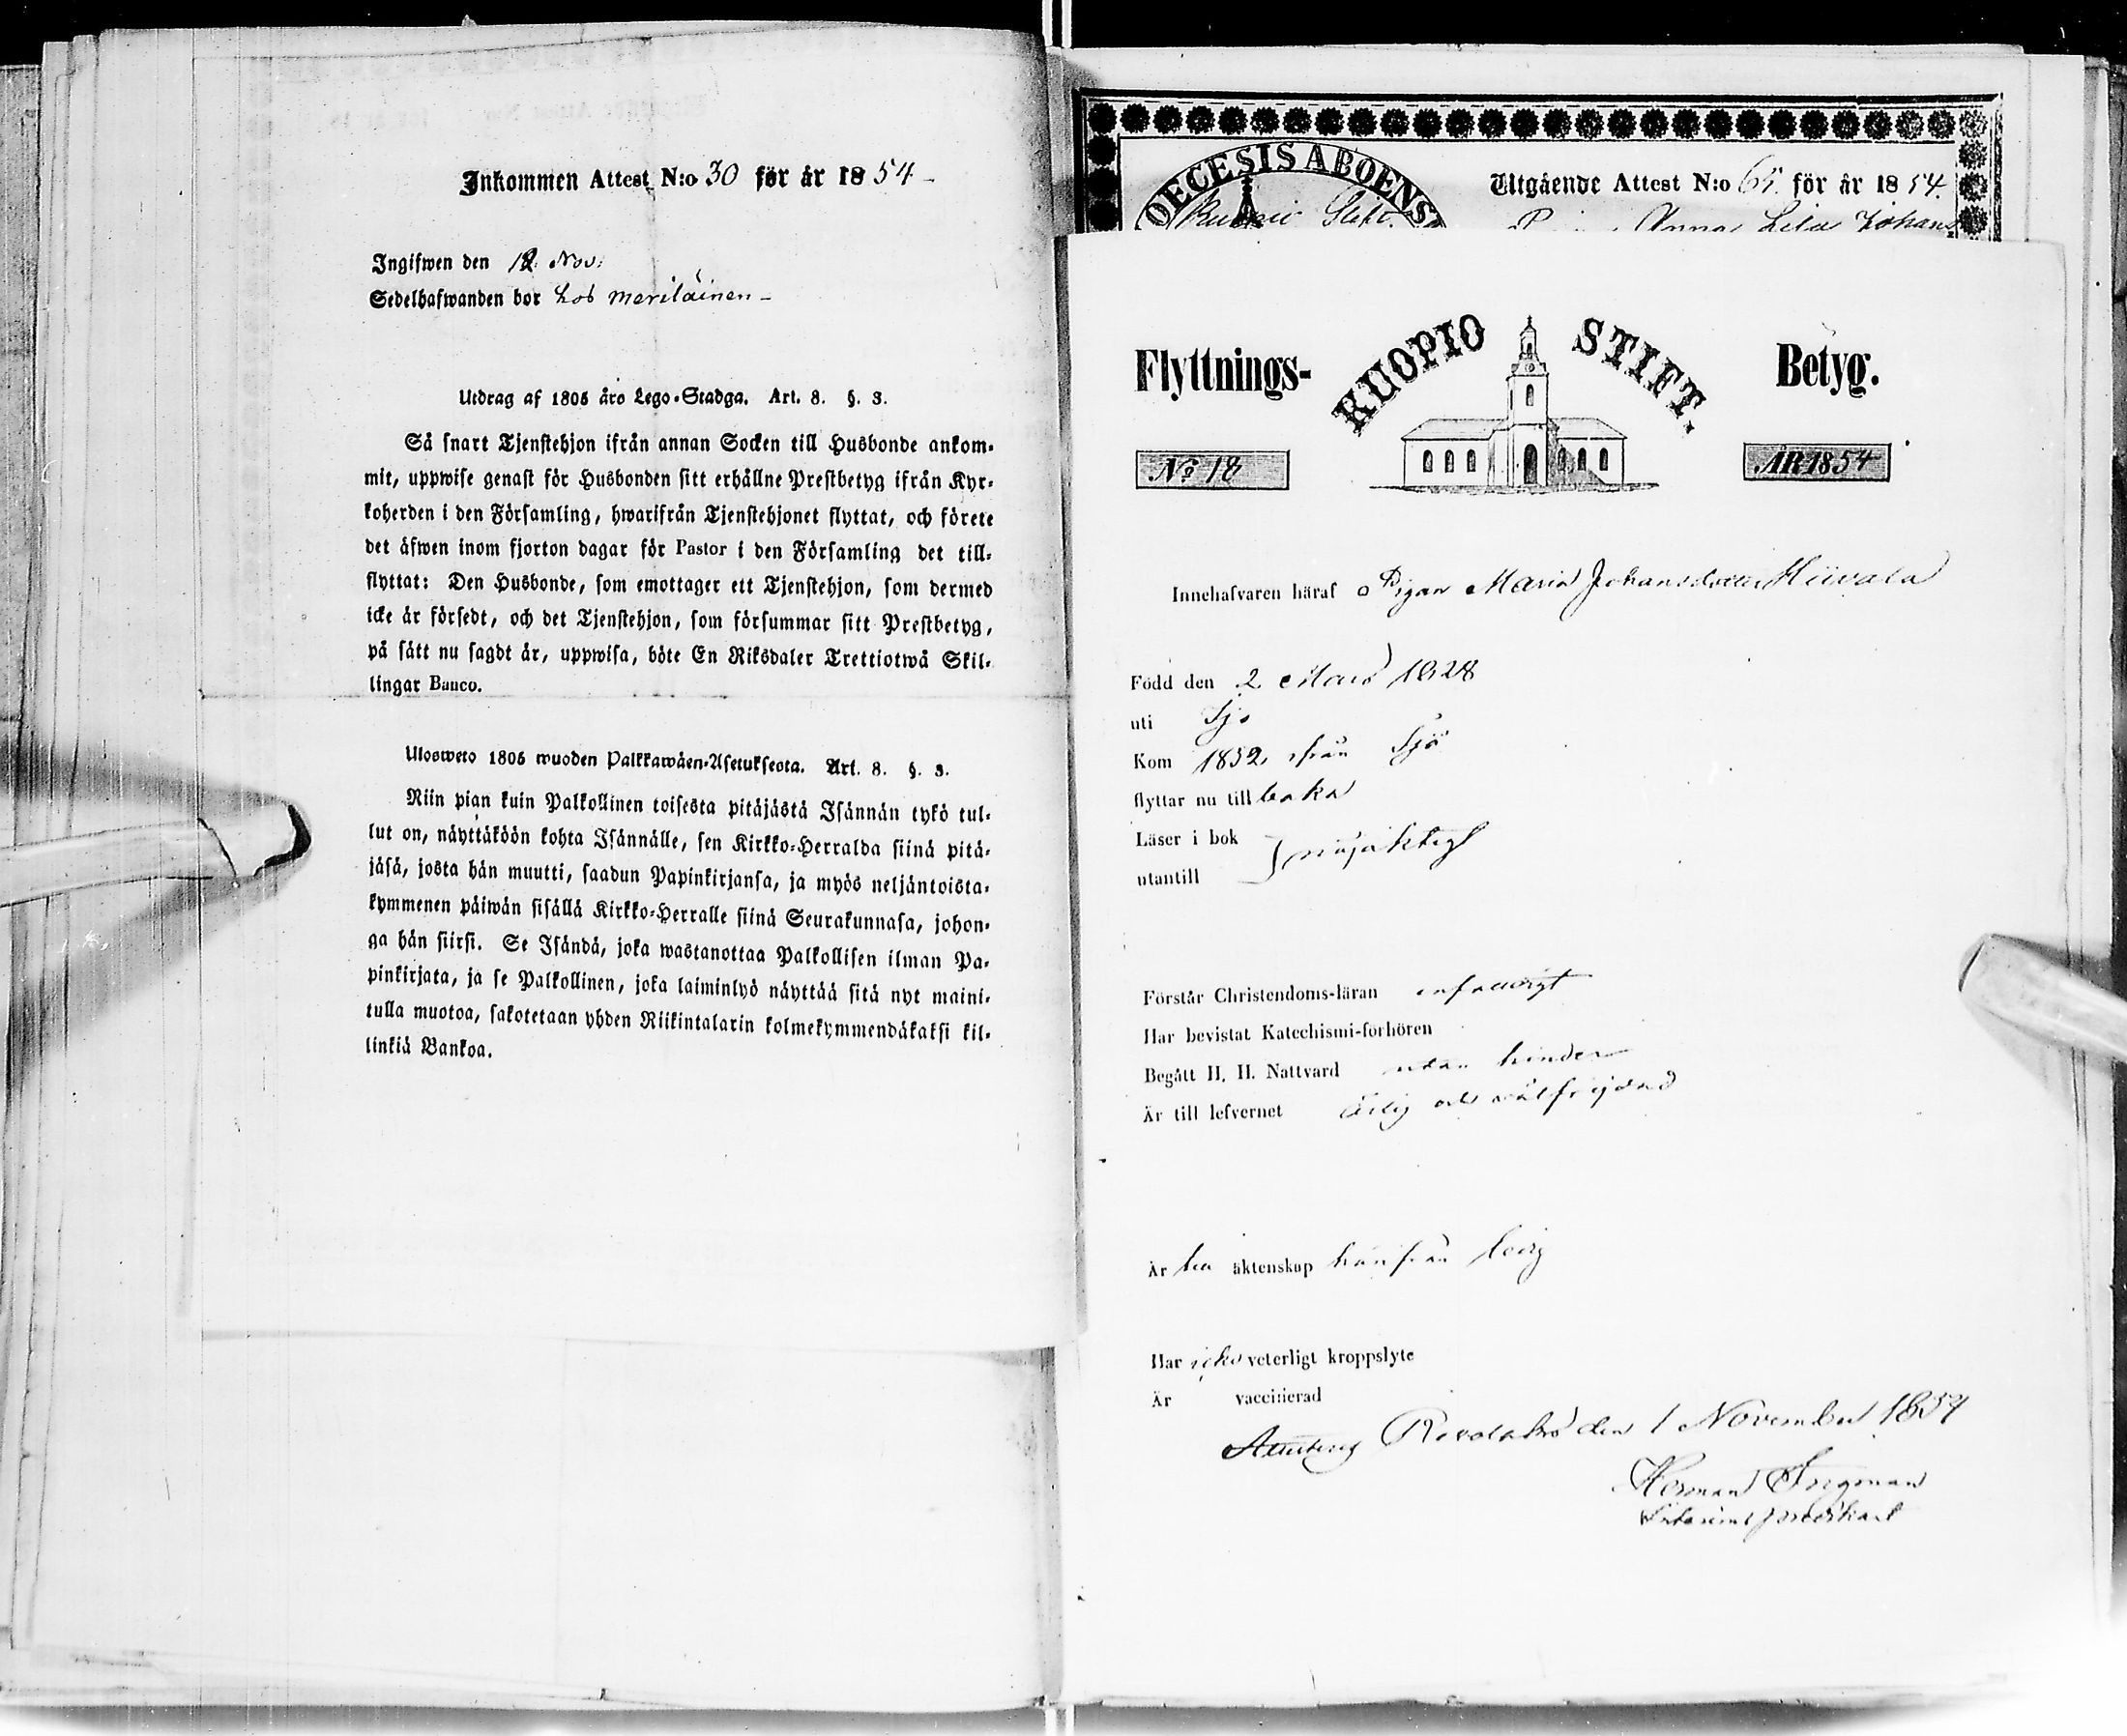 Inkommen Attest N:o 30 för år 1854
Ingifwen den 12 Nov:
Sedelhafwanden bor hos Meriläinen
Utdrag af 1805 års Lego-Stadga. Art. 8. §. 3.
Så snart Tjenstehjon ifrån annan Socken till Husbonde ankom-
mit, uppwise genast för Husbonden sitt erhållne Prestbetyg ifrån Kyr-
koherden i den Församling, hwarifrån Tjenstehjonet flyttat, och förete
det äfwen inom fjorton dagar för Pastor i den Församling det till-
flyttat: Den Husbonde, som emottager ett Tjenstehjon, som dermed
icke är försedt, och det Tjenstehjon, som försummar sitt Prestbetyg,
på sätt nu sagdt är, uppwisa, böte En Riksdaler Trettiotwå Skil-
lingar Banco.
Ulosweto 1805 wuoden Palkkawäen-Asetuksesta. Art. 8. §. 3.
Niin pian kuin Palkollinen toisesta pitäjästä Isännän tykö tul-
lut on, näyttäköön kohta Isännälle, sen Kirkko-Herralda siinä pitä-
jäsä, josta hän muutti, saadun Papinkirjansa, ja myös neljäntoista-
kymmenen päiwän sisällä Kirkko-Herralle siinä Seurakunnasa, johon-
ga hän siirsi. Se Isändä, joka wastanottaa Palkollisen ilman Pa-
pinkirjata, ja se Palkollinen, joka laiminlyö näyttää sitä nyt maini-
tulla muotoa, sakotetaan yhden Riikintalarin kolmekymmendäkaksi kil-
linkiä Bankoa.
OECESIS ABOENS
Utgående Attest N:o 65 för år 1854.
Kuopio Stift.
Anna Lisa Johans
Flyttnings- KUOPIO STIFT. Betyg.
No 18
ÅR 1854
Innehafvaren häraf Pigan Maria Johansdotter Hiivala
Född den 2 Mars 1828
uti Sjo
Kom 1852 ifrån Sjo
flyttar nu tillbaka
Läser i bok
utantill } nöjaktigt
Förstår Christendoms-läran enfaldigt
Har bevistat Katechismi-förhören
Begått H. H. Nattvard utan hinder
Är till lefvernet ärlig och välfrejdad
Är till äktenskap härifrån ledig
Har icke veterligt kroppslyte
Är vaccinerad
Attesterar Revolaks den 1 November 1854
Herman